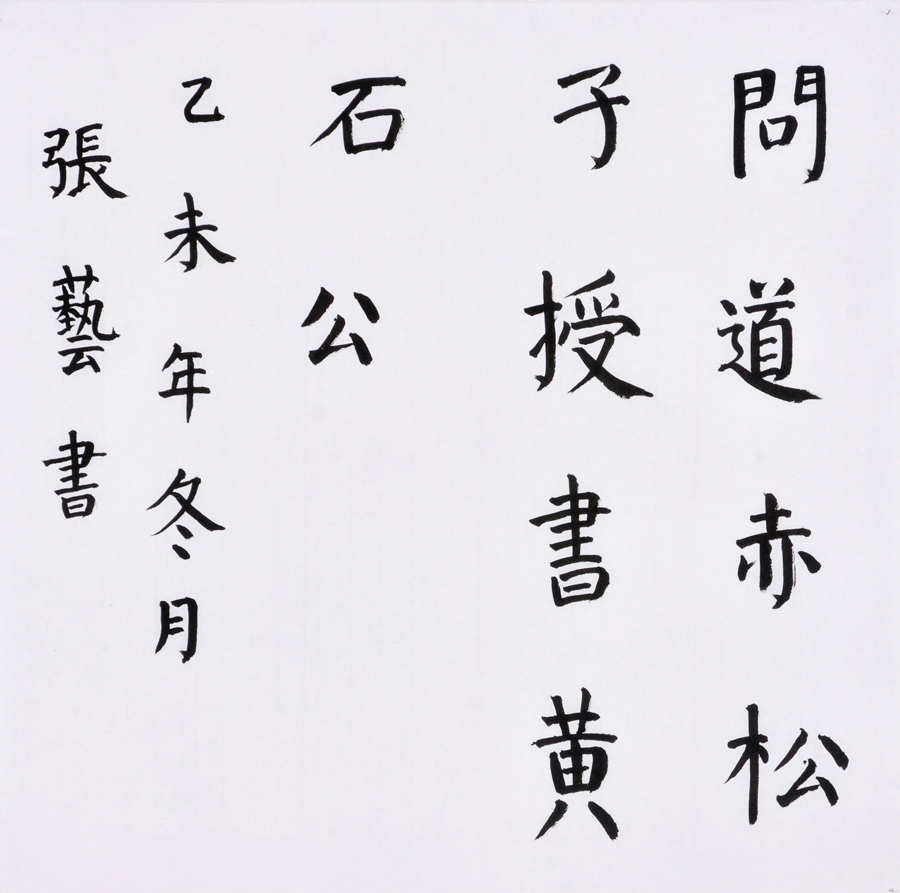 問道赤松
子授書黄
石公
乙未年冬月
張藝書